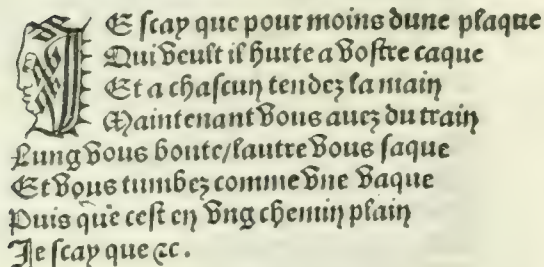 JE scay que pour moins dune plaque
Qui veult il hurte a vostre caque
Et a chascun tendez la main
Maintenant vous auez du train
Lung vous boute/lautre vous saque
Et vous tumbez comme vne vaque
Puis que cest en vng chemin plain
Je scay que &c.